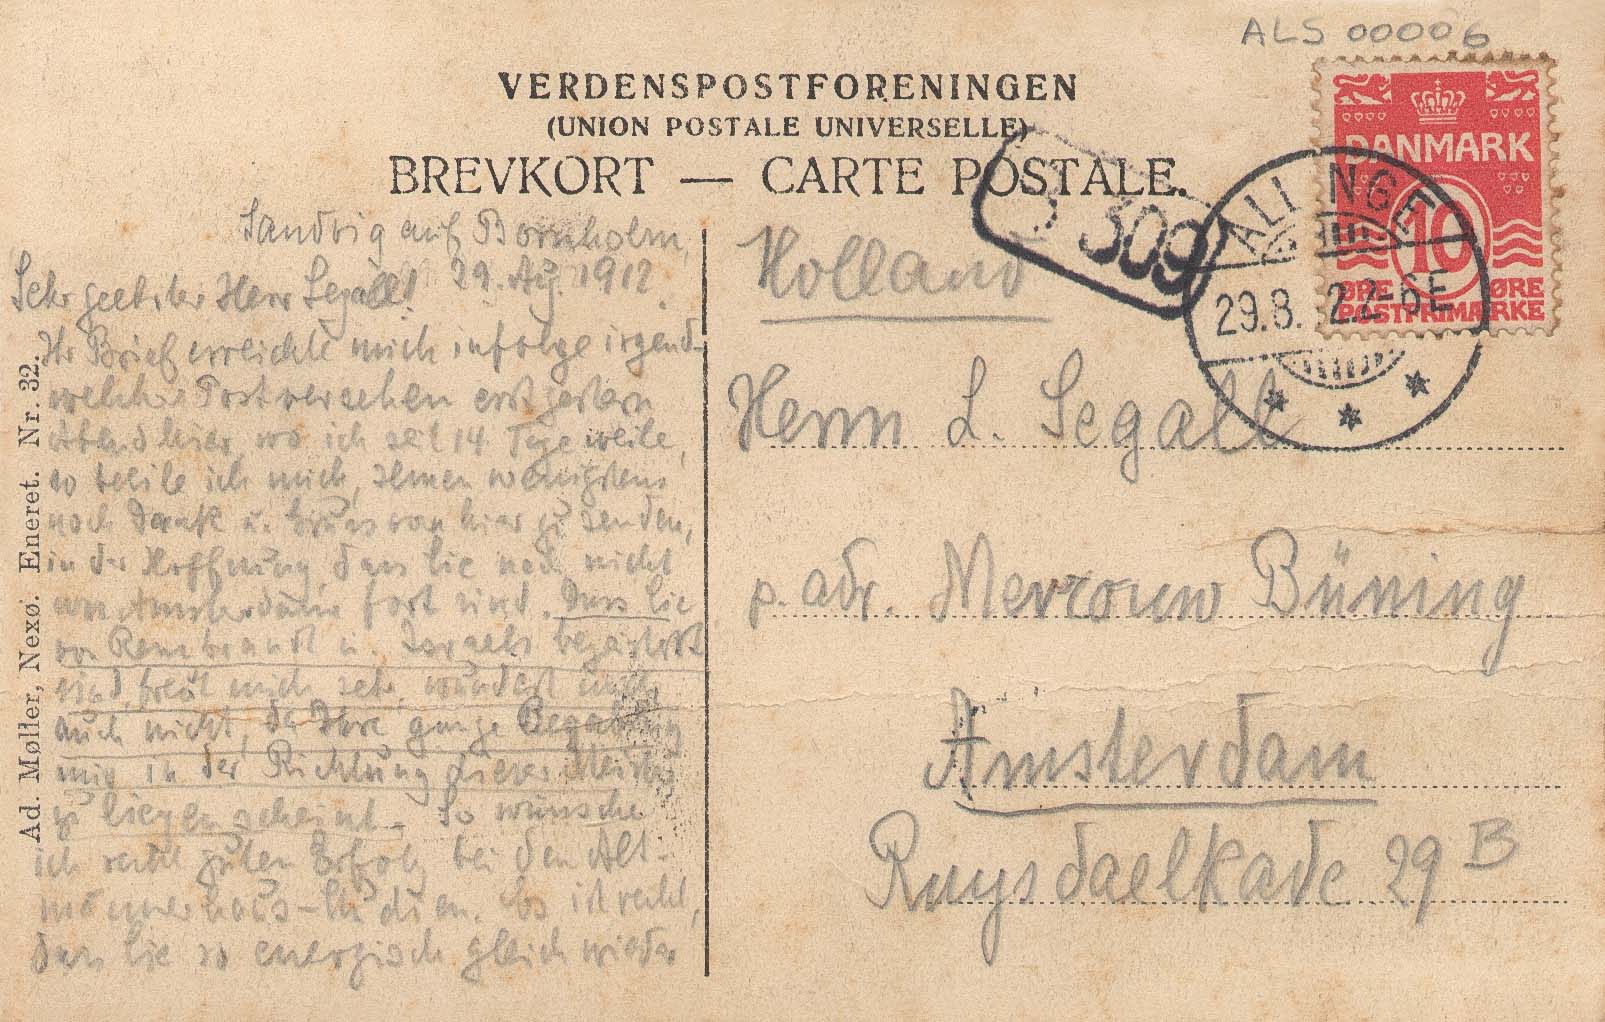 ALS 00006
VERDENSPOSTFORENINGEN
(UNION POSTALE UNIVERSELLE)
BREVKORT — CARTE POSTALE.
DANMARK
10
ØRE ØRE
POSTFRIMÆRKE
ALLINGE
29.8. 12.2-6E
309
Sandvig auf Bornholm,
29. Aug. 1912.
Sehr geehrter Herr Segall!
Ihr Brief erreichte mich infolge irgend-
welcher Postversehen erst gestern
Abend hier, wo ich seit 14 Tage weile,
so beeile ich mich, Ihnen wenigstens
noch Dank u. Gruss von hier zu senden,
in der Hoffnung, dass Sie noch nicht
von Amsterdam fort sind. Dass Sie
von Rembrandt u. Israels begeistert
sind, freut mich sehr, wundert mich
auch nicht, da Ihre ganze Begabung
mir in der Richtung dieser Meister
zu liegen scheint. So wünsche
ich recht guten Erfolg bei den Alt-
männerhaus-Studien. Es ist recht,
dass Sie so energisch gleich wieder
Holland
Herrn L. Segall
p. adr. Mevrouw Büning
Amsterdam
Ruysdaelkade 29 B
Ad. Møller, Nexø. Eneret. Nr. 32.